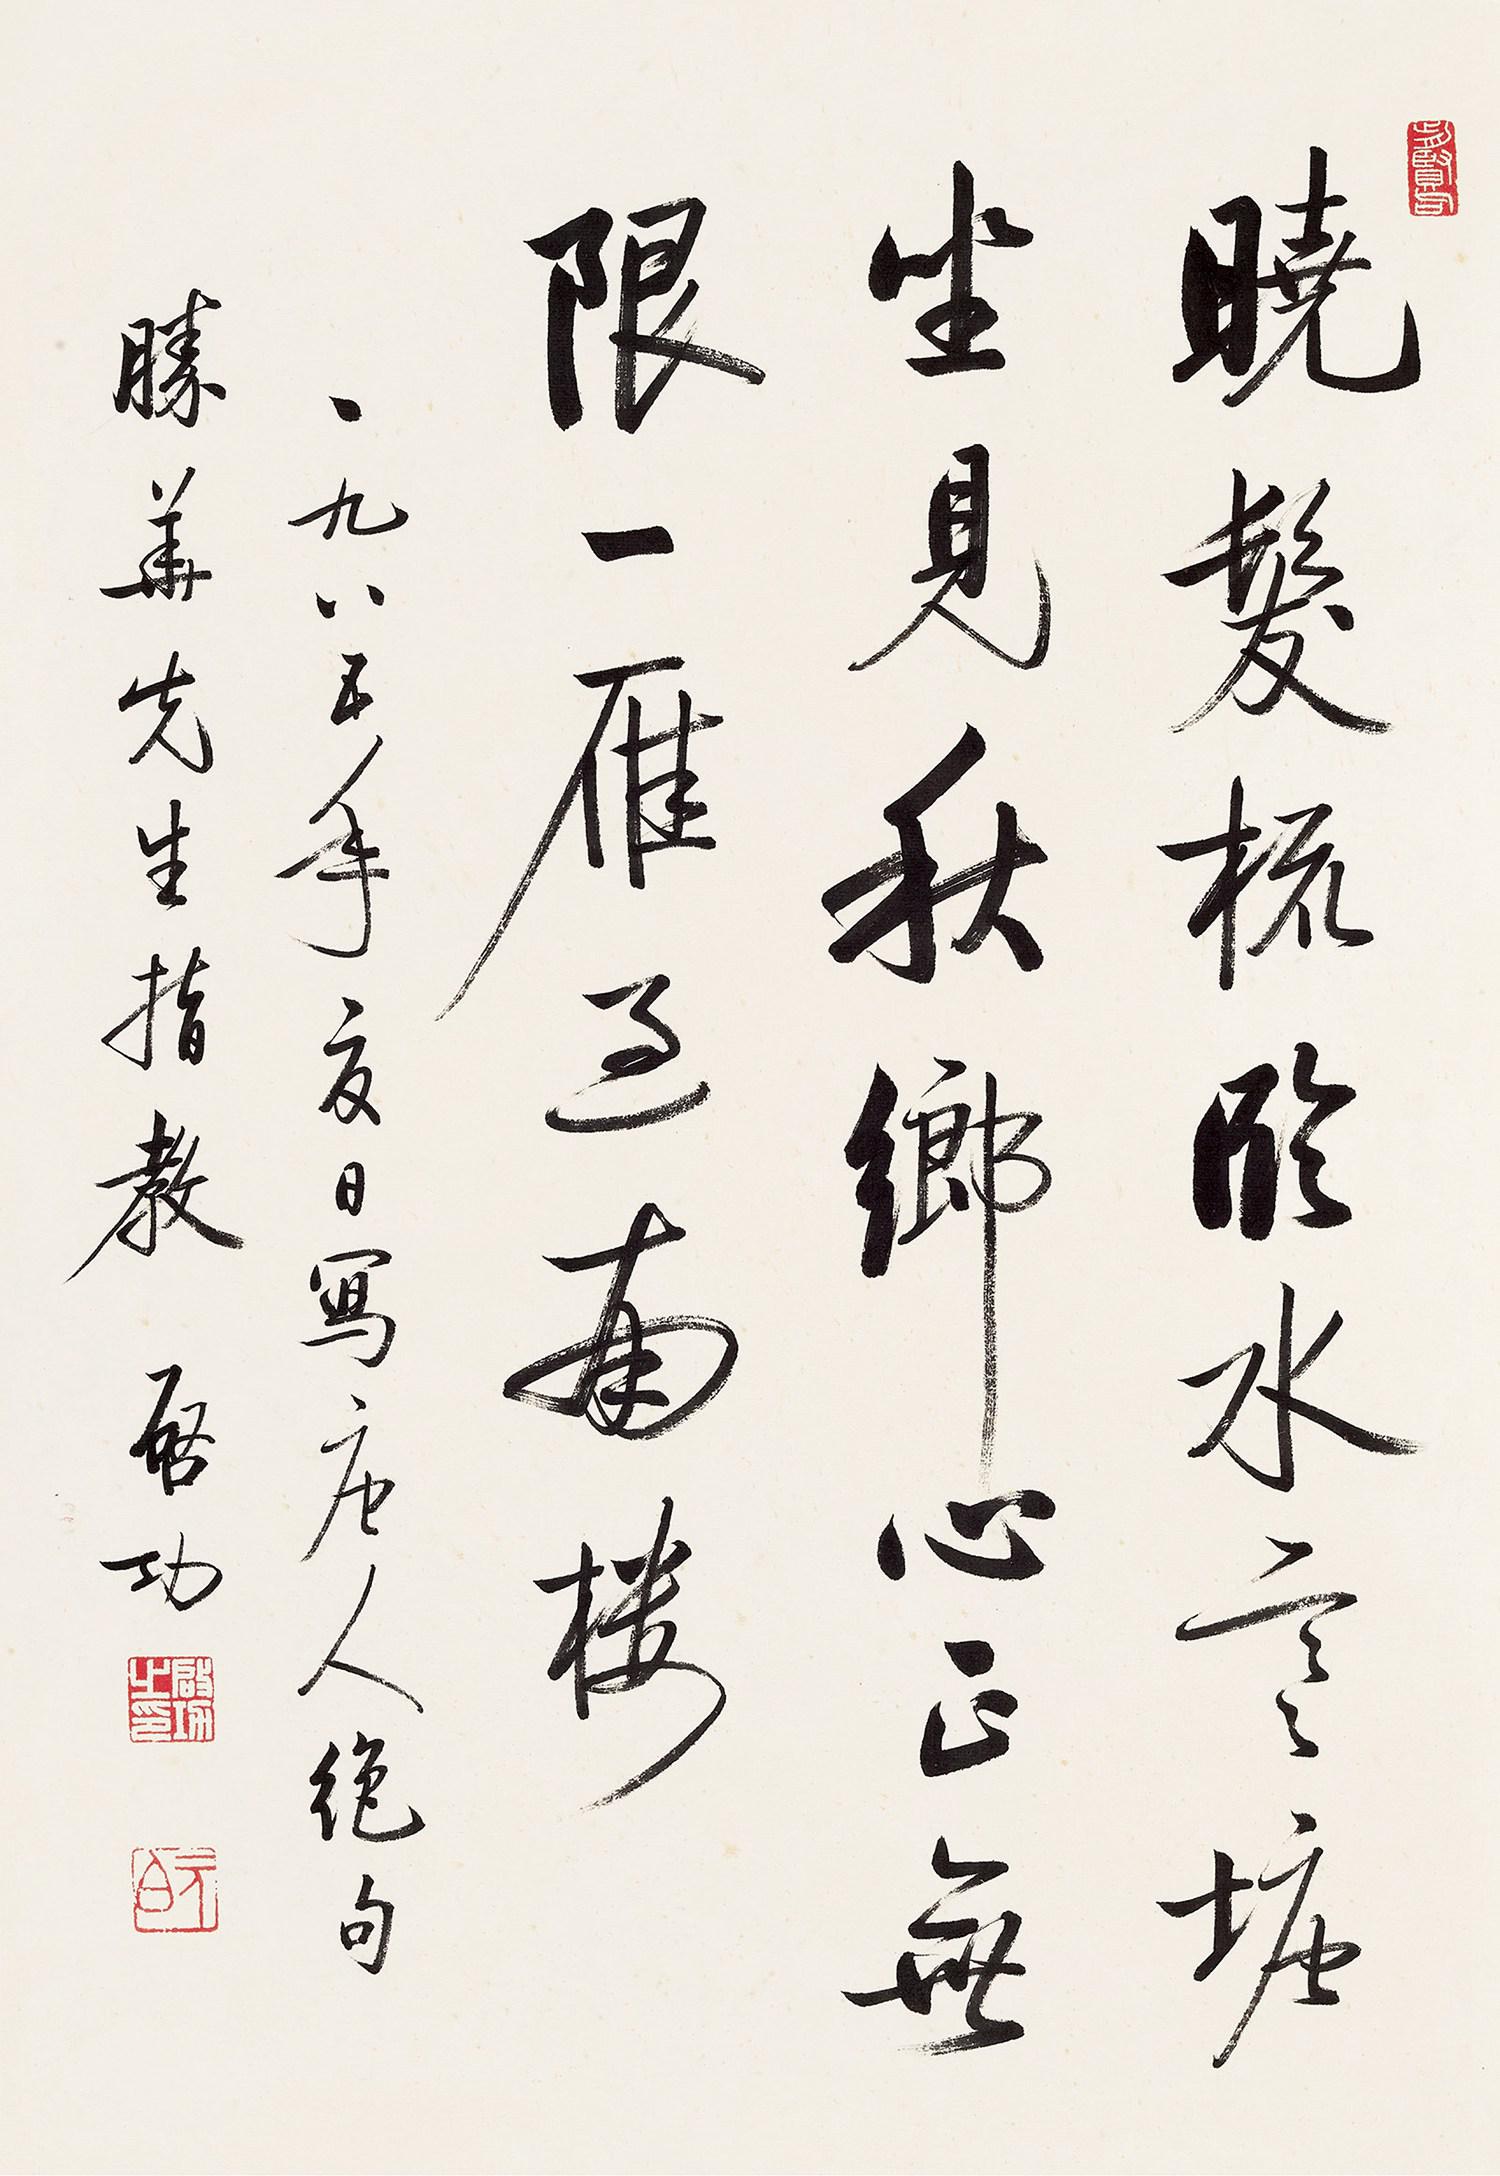 曉髮梳臨水寒塘
坐見秋鄉心正無
限一雁過南樓
一九八五年夏日寫唐人絕句
勝華先生指教 啓功
啟功之印
元白